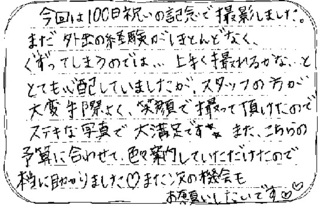 今回は100日祝いの記念で撮影しました。
まだ外出の経験がほとんどなく、
ぐずってしまうのでは… 上手く撮れるかな、と
とても心配していましたが、スタッフの方が
大変手際よく、笑顔で撮って頂けたので
ステキな写真で大満足です。また、こちらの
予算に合わせて、色々案内していただけたので
本当に助かりました♡また次の機会も
お願いしたいです♡♡